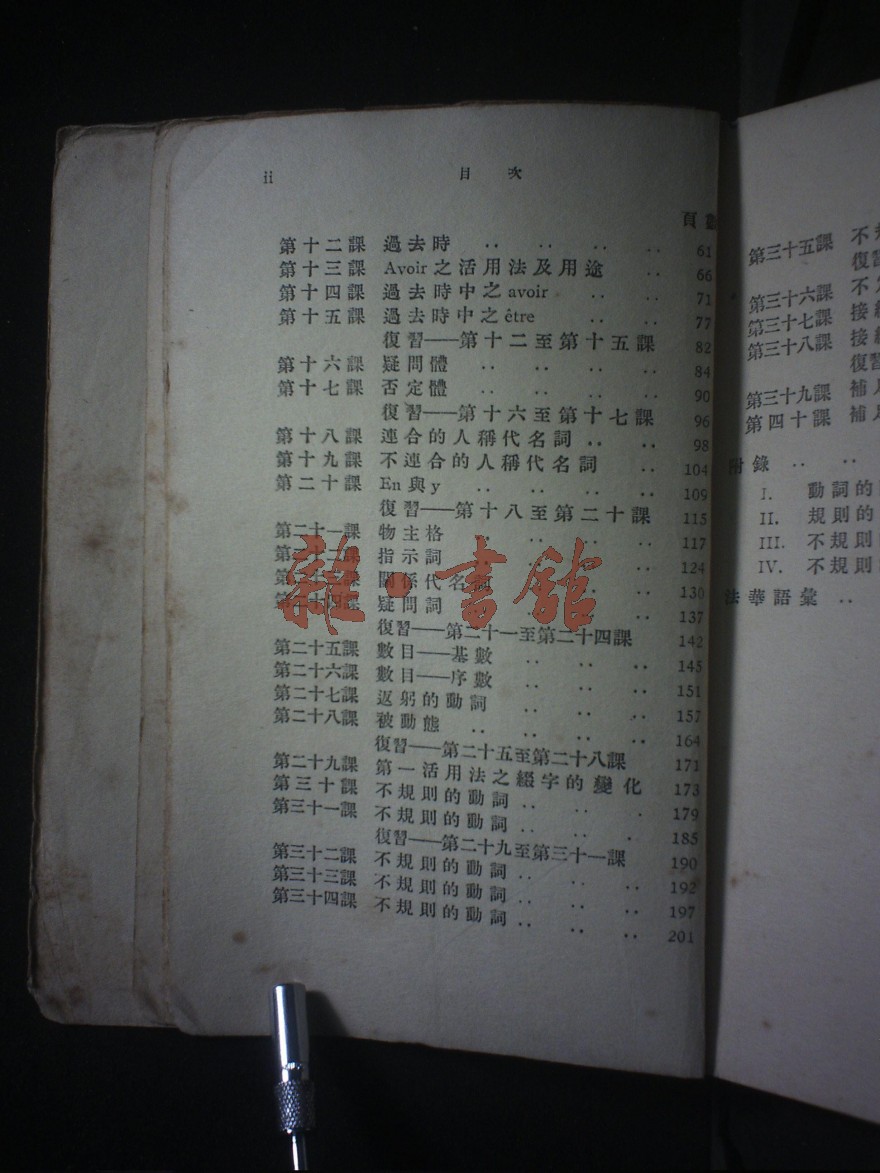 ii 目次
頁
第十二課 過去時 .. .. .. .. 61
第十三課 Avoir之活用法及用途 .. 66
第十四課 過去時中之avoir .. .. 71
第十五課 過去時中之être .. .. 77
復習——第十二至第十五課 82
第十六課 疑問體 .. .. .. .. 84
第十七課 否定體 .. .. .. .. 90
復習——第十六至第十七課 96
第十八課 連合的人稱代名詞 .. .. 98
第十九課 不連合的人稱代名詞 .. 104
第二十課 En與y .. .. .. .. 109
復習——第十八至第二十課 115
第二十一課 物主格 .. .. .. 117
第二十二課 指示詞 .. .. .. 124
第二十三課 關係代名詞 .. .. 130
第二十四課 疑問詞 .. .. .. 137
復習——第二十一至第二十四課 142
第二十五課 數目——基數 .. .. .. 145
第二十六課 數目——序數 .. .. .. 151
第二十七課 返躬的動詞 .. .. .. 157
第二十八課 被動態 .. .. .. .. 164
復習——第二十五至第二十八課 171
第二十九課 第一活用法之綴字的變化 173
第三十課 不規則的動詞 .. .. . 179
第三十一課 不規則的動詞 .. .. .. 185
復習——第二十九至第三十一課 190
第三十二課 不規則的動詞 .. .. .. 192
第三十三課 不規則的動詞 .. .. .. 197
第三十四課 不規則的動詞 .. .. .. 201
龍一書館
第三十五課 不規
復習
第三十六課 不
第三十七課 接
第三十八課 接
復習
第三十九課 補
第四十課 補
附錄 .. ..
I. 動詞的
II. 規則的
III. 不規則
IV. 不規則
法華語彙 ..